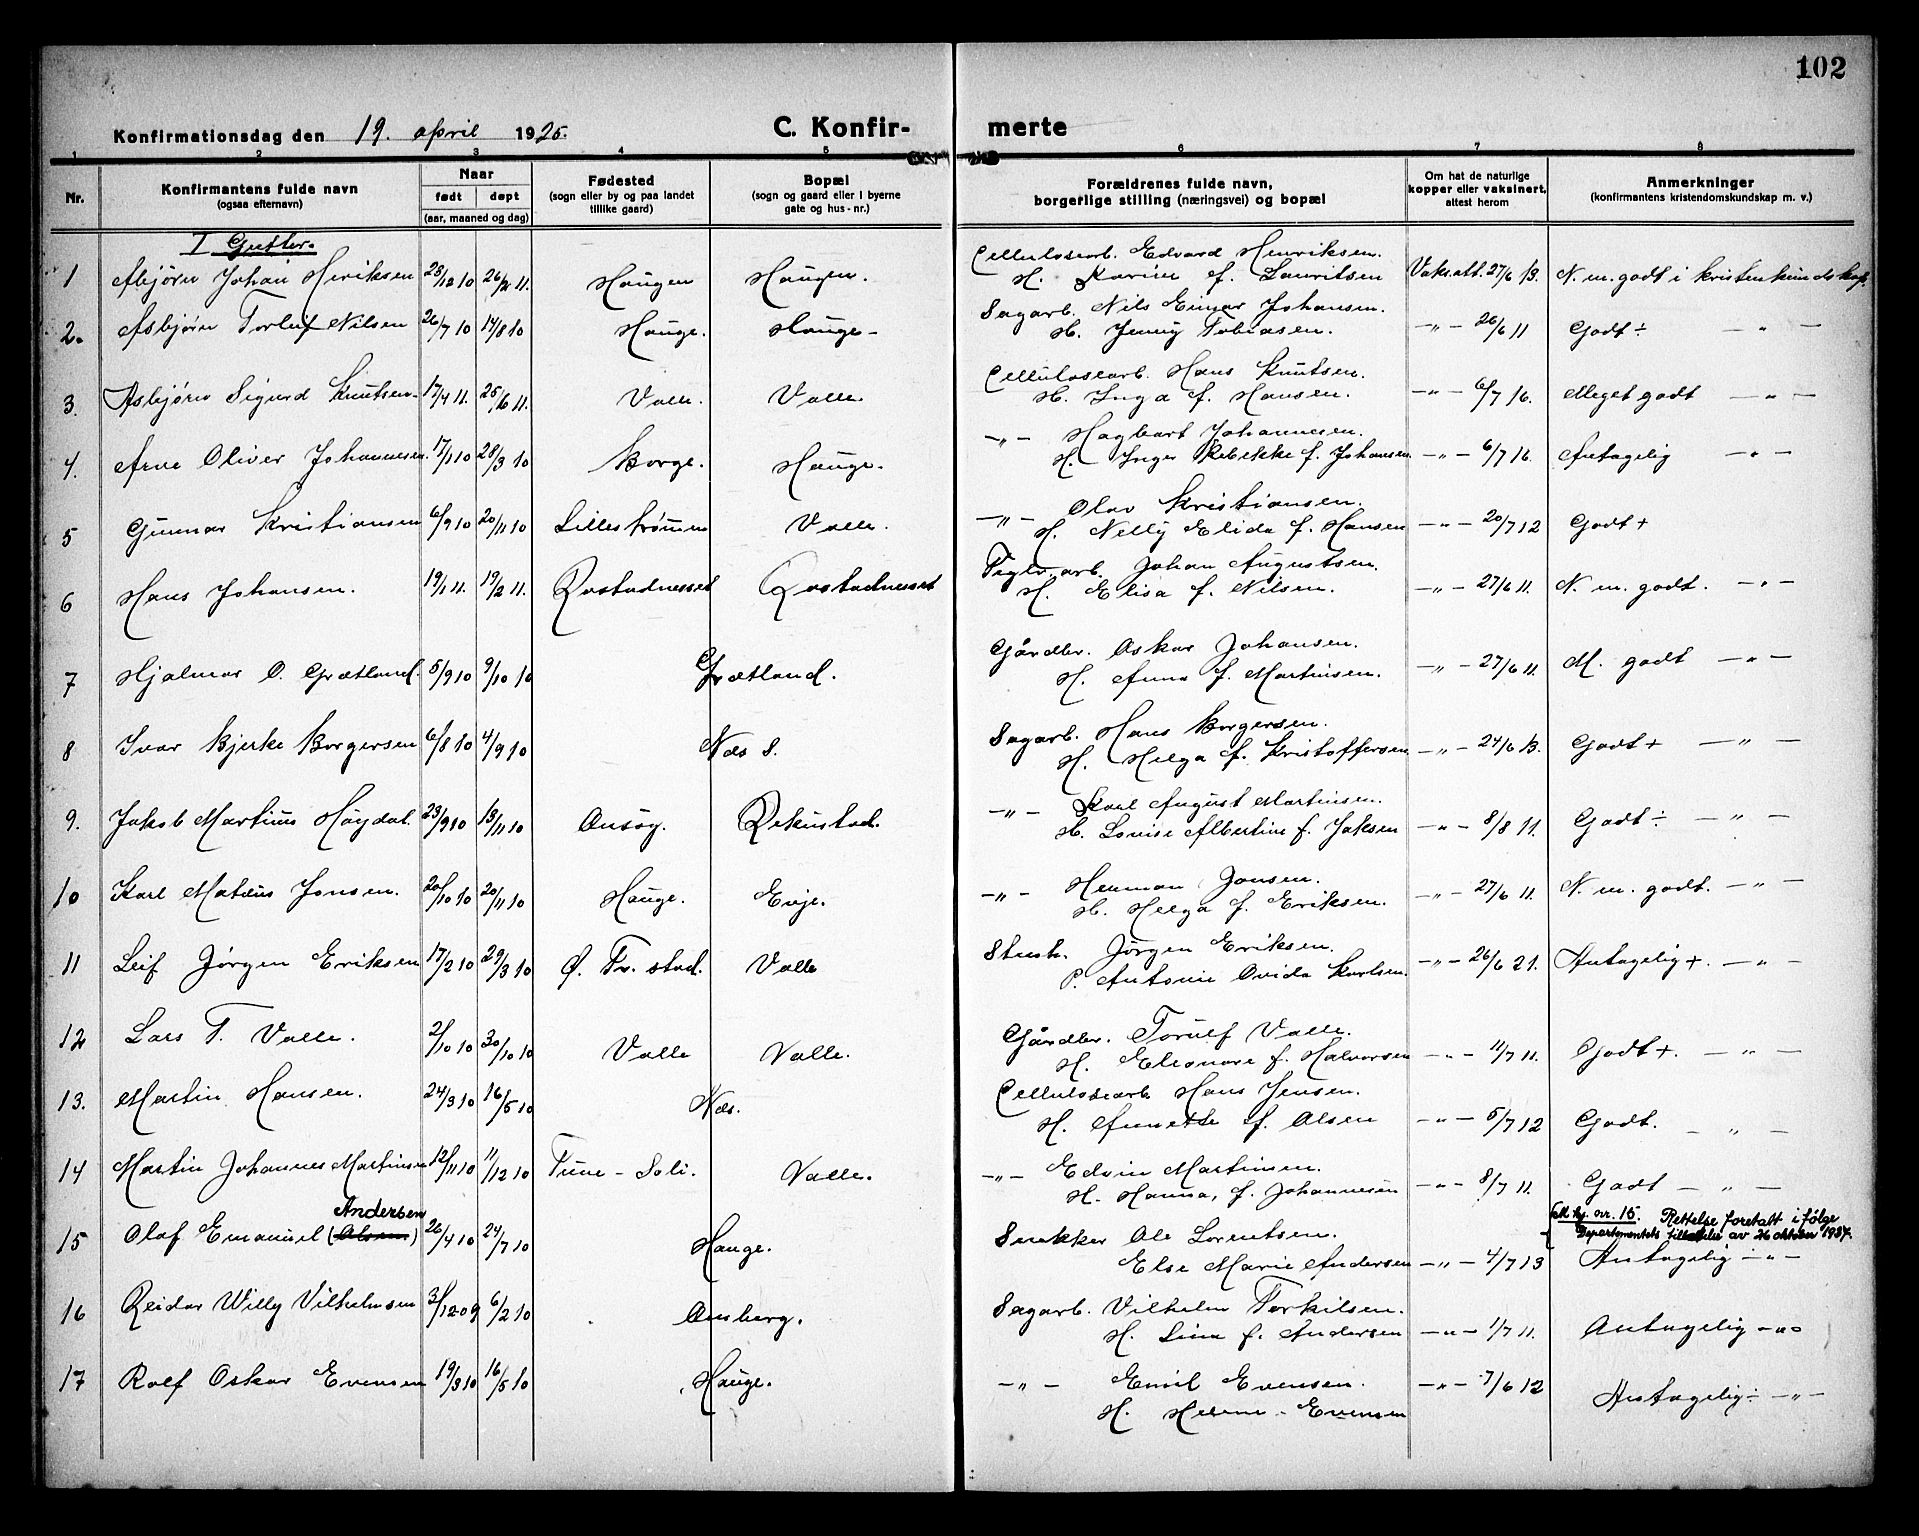 102
Konfirmationsdag den 19. april 1925.
C. Konfir-
merte
1 2 3 4 5 6 7 8
Nr.
Konfirmantens fulde navn
(ogsaa efternavn)
Naar
født døpt
(aar, maaned og dag)
Fødested
(sogn eller by og paa landet
tillike gaard)
Bopæl
(sogn og gaard eller i byerne
gate og hus-nr.)
Forældrenes fulde navn,
borgerlige stilling (næringsvei) og bopæl
Om hat de naturlige
kopper eller vaksinert,
attest herom
Anmerkninger
(konfirmantens kristendomskundskap m. v.)
I Gutter.
Cellulosearb. Edvard Henriksen.
1 Asbjørn Johan Henriksen 28/12 10 26/2 11. Haugen Haugen. H. Karine f. Lauritsen Vaks.att. 27/6 13. N. m. godt i kristenkundskap.
Sagarb. Nils Einar Johansen.
2. Asbjørn Torluf Nilsen 26/7 10 14/8 10 Hauge. Hauge- H. Jenny Tobiasen. -"- 26/6 11 Godt ÷ - " -
Cellulosearb. Hans Knutsen.
3. Asbjørn Sigurd Knutsen. 17/4 11. 25/6 11. Valle. Valle. H. Inga f. Hansen. -"- 6/7 16. Meget godt - " -
-"- Hagbart Johannesen.
4. Arne Oliver Johannesen. 17/1 10 28/3 10 Borge. Hauge. H. Inger Rebekke f. Johansen. -"- 6/7 16. Antagelig - " -
-"- Olav Kristiansen.
5 Gunnar Kristiansen 6/9 10 20/11 10 Lillestrømm Valle. H. Nelly Elida f. Hansen -"- 20/7 12 Godt +
Teglv.arb. Johan Augustsen.
6 Hans Johansen. 19/1 11. 19/2 11. Rostadnesset Rostadnesset H. Elisa f. Nilsen. -"- 27/6 11. N. m. godt. - " -
Gårdbr. Oskar Johansen.
7 Hjalmar O. Grætland. 5/9 10 9/10 10 Grætland. H. Anna f. Martinsen. -"- 27/6 11. M. godt - " -
Sagarb. Hans Borgersen.
8 Ivar Bjerke Borgersen 6/8 10 4/9 10 Næs S. H. Helga f. Kristoffersen. -"- 24/6 13. Godt + - " -
-"- Karl August Martinsen.
9. Jakob Martinus Høydal. 23/9 10 13/11 10 Onsøy. Rekustad. H. Lovise Albertine f. Jaksen -"- 8/8 11. Godt ÷ - " -
-"- Herman Jonsen.
10 Karl Matæus Jonsen. 20/10 10 20/11 10 Hauge. Evje. H. Helga f. Eriksen. -"- 27/6 11. N. m. godt. - " -
Stenh. Jørgen Eriksen.
11 Leif Jørgen Eriksen 17/2 10 29/3 10 Ø. Fr. stad. Valle P. Antonie Ovida Karlsen. -"- 26/6 21. Antagelig +. - " -
Gårdbr. Torulf Valle.
12 Lars T. Valle. 2/10 10 30/10 10 Valle Valle. H. Eleonore f. Halvorsen -"- 11/7 11. Godt +. - " -
Cellulosearb. Hans Jensen.
13. Martin Hansen. 24/3 10 16/5 10 Næs. H. Annette f. Olsen -"- 5/7 12 Godt. - " -
-"- Edvin Martinsen.
14 Martin Johannes Martinsen 12/11 10 11/12 10 Tune - Soli. Valle. H. Hanna, f. Johannesen -"- 8/7 11. Godt - " -
Andersen
nr. 15. Rettelse foretatt i følge
Departementets tillatelse av 26 oktober 1937.
15 Olaf Emanuel (Olsen) 26/4 10 24/7 10 Hauge. Snekker Ole Lorentsen.
Else Marie Andersen -"- 4/7 13 Antagelig - " -
16 Reidar Willy Vilhelmsen 3/12 09 6/2 10 Onsberg. Sagarb. Vilhelm Torkilsen.
H. Lina f. Andersen -"- 1/7 11. Antagelig - " -
17 Rolf Oskar Evensen 19/3 10 16/5 10 Hauge. -"- Emil Evensen. -"- 7/6 12 Antagelig ÷ - " -
H. Helene - Evensen